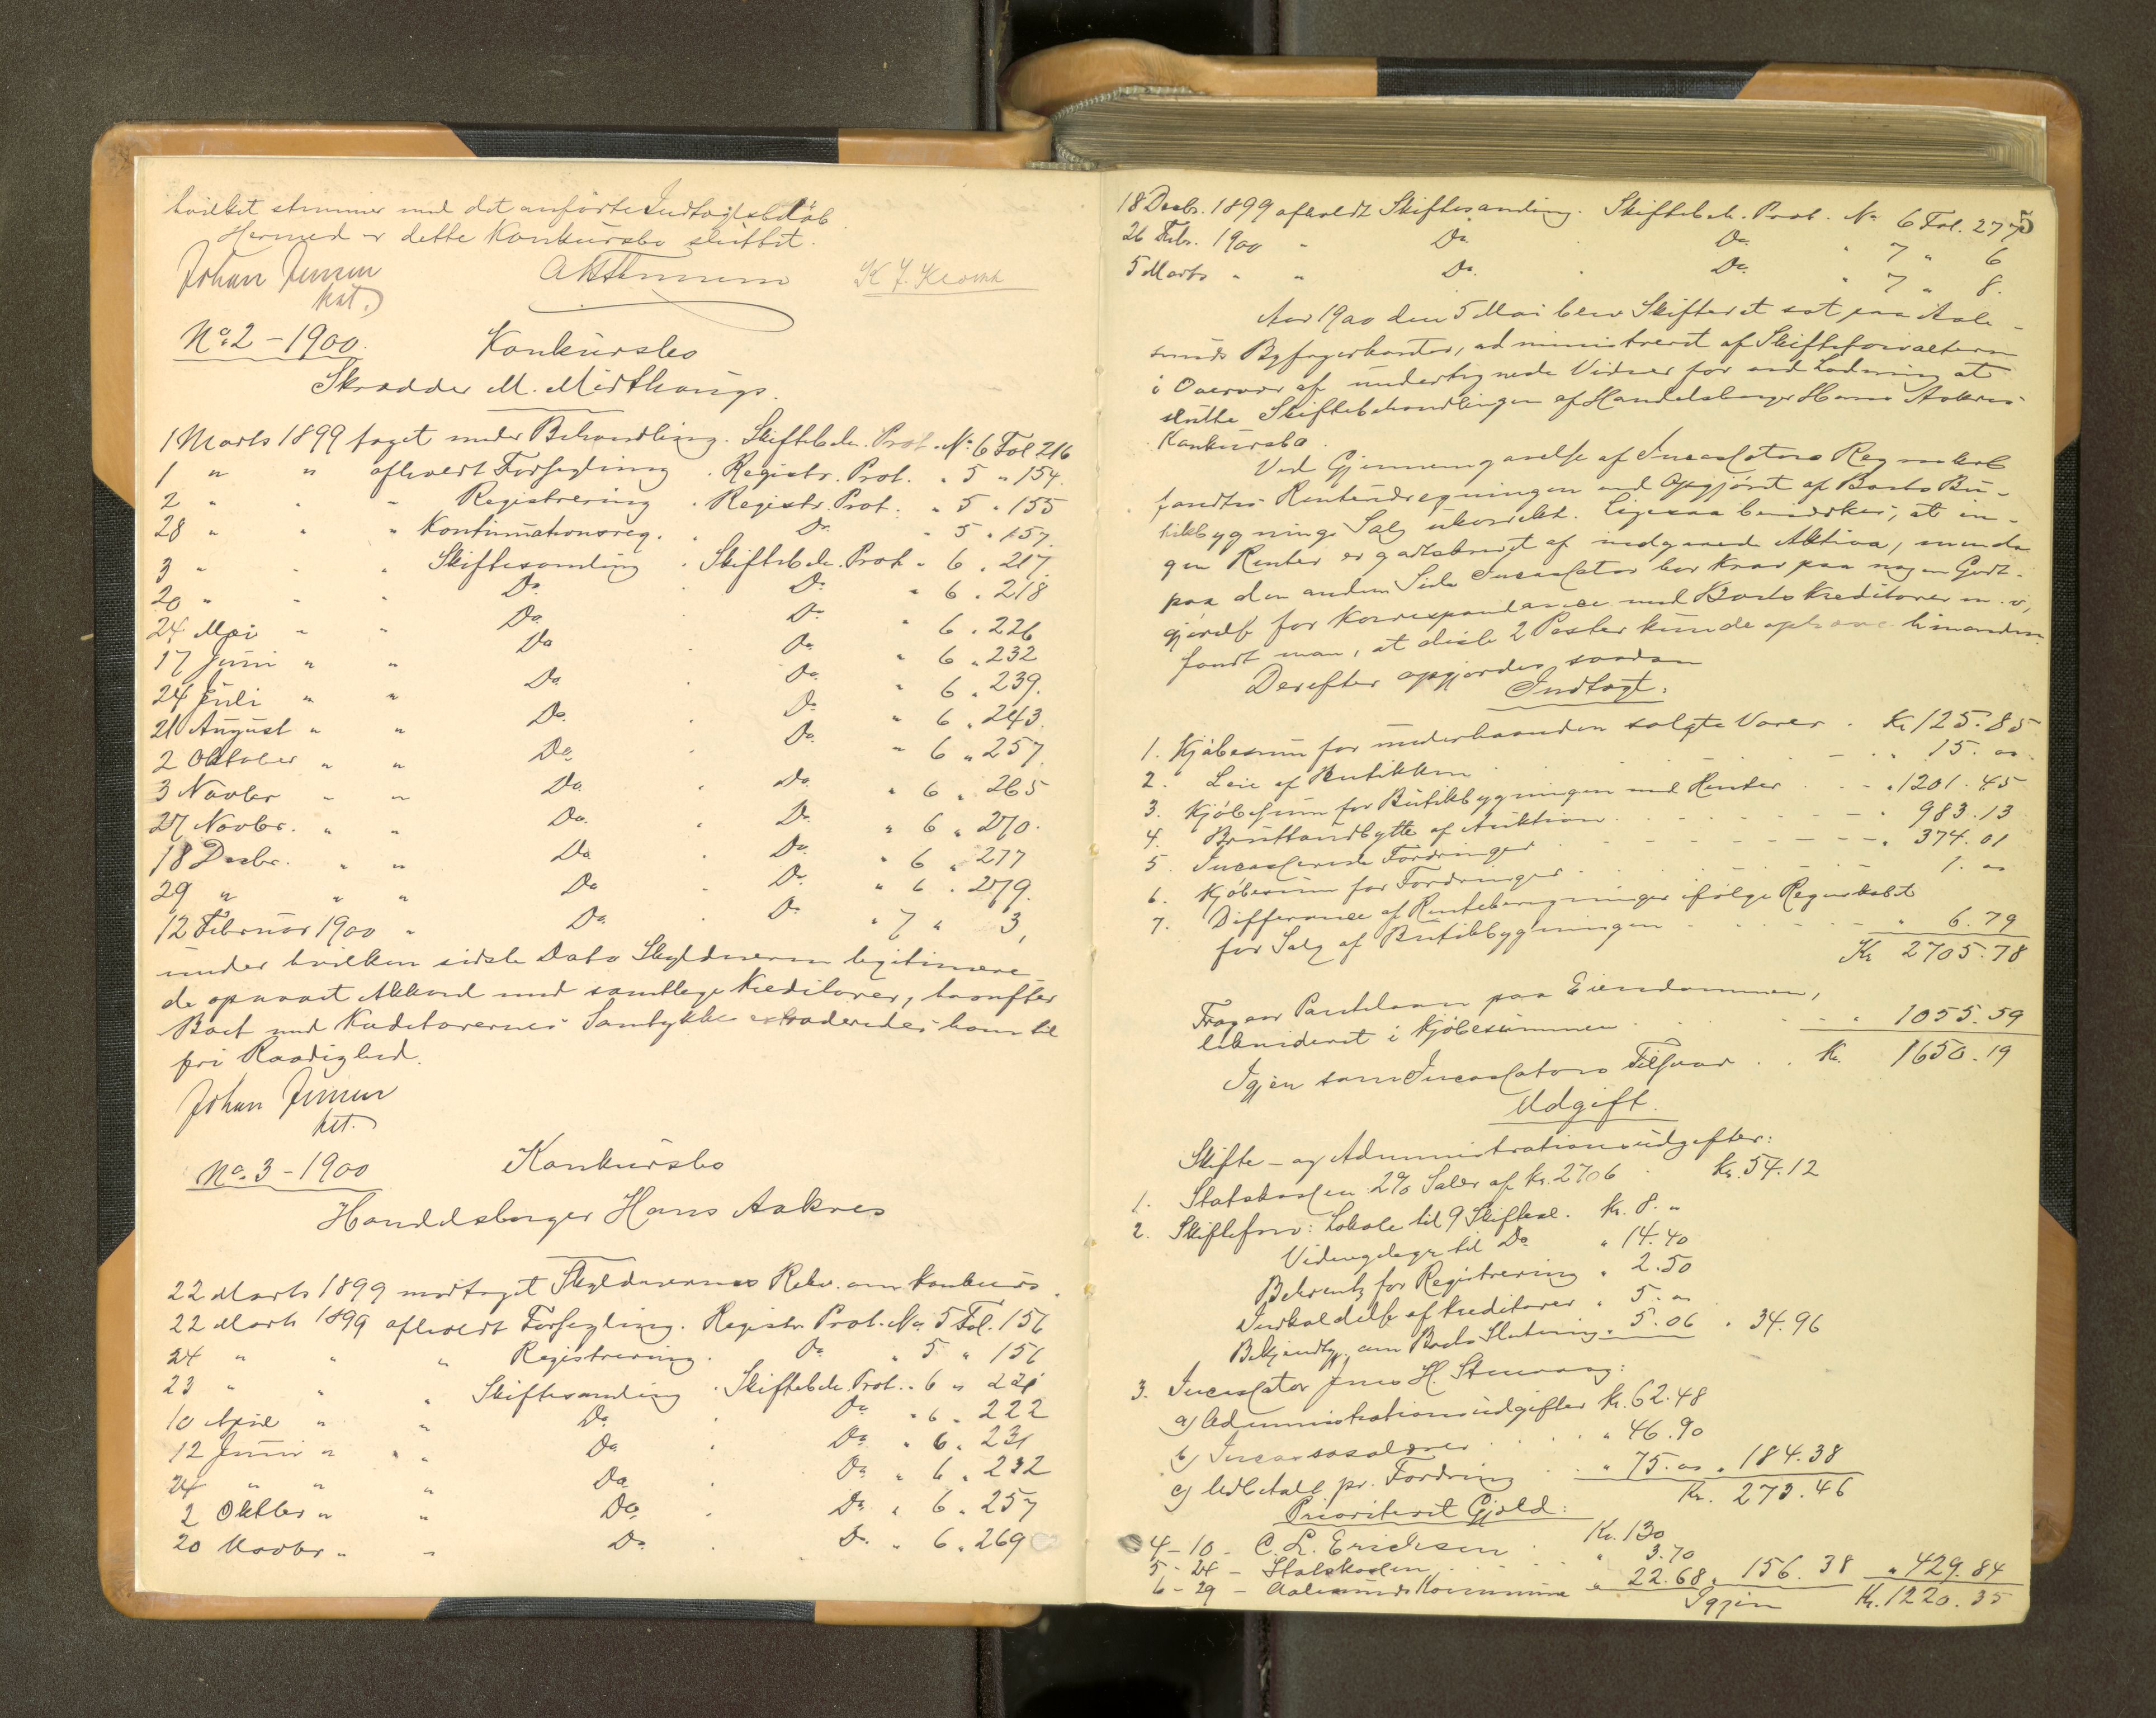 hvilket stemmer med det anførte Indtægtsbeløb
Hermed er dette Konkursbo sluttet.
Johan Jensen
kst.
No. 2 - 1900. Konkursbo
Skrædder M. Midthaugs.
1 Marts 1899 taget under Behandling. Skiftebeh. Prot. No. 6 Fol 216
1 " " afholdt Forsegling . Registr. Prot. " 5 " 154.
2 " " " Registrering . Registr. Prot. " 5 " 155
28 " " " Kontinuationsreg. " Do. " 5 " 157.
3 " " " Skiftesamling . Skiftebeh. Prot. " 6 " 217.
20 " " " Do. . Do. " 6 " 218
24 Mai " " Do . Do. " 6 . 226
17 Juni " " Do . Do. " 6 " 232
24 Juli " " Do . Do. " 6 " 239.
21 August " " Do. . Do. " 6 " 243.
2 Oktober " " Do. . Do. " 6 " 257.
3 Novbr " " Do. . Do. " 6 " 265
27 Novbr. " " Do. . Do. " 6 " 270.
18 Decbr. " " Do. . Do. " 6 " 277
29 " " " Do . Do. " 6 . 279.
12 Februar 1900 " Do. . Do. " 7 " 3,
under hvilken sidste Dato Skyldneren legitimere-
de opnaaet Akkord med samtlige Kreditorer, hvorefter
Boet med Kreditorernes Samtykke extraderedes ham til
fri Raadighed.
Johan Jensen
kst.
No. 3 - 1900 Konkursbo
Handelsborger Hans Aakres
22 Marts 1899 modtaget Skyldnerens Rekv. om Konkurs.
22 Marts 1899 afholdt Forsegling. Registr. Prot. No. 5 Fol. 156
24 " " " Registrering. Do. " 5 " 156
23 " " " Skiftesamling . Skiftebeh. Prot. " 6 " 221
10 April " " Do. . Do " 6 " 222
12 Juni " " Do. . Do. " 6 " 231
24 " " " Do. . Do. " 6 " 232
2 Oktbr " " Do. . Do. " 6 " 257
20 Novbr " " Do. . Do. " 6 " 269
5
18 Decbr. 1899 afholdt Skiftesamling. Skiftebeh. Prot. No. 6 Fol. 277
26 Febr. 1900 " Do. . Do. " 7 " 6
5 Marts " " Do. . Do. " 7 " 8.
Aar 1900 den 5 Mai blev Skifteret sat paa Aale-
sunds Byfogedkontor, administreret af Skifteforvalteren
i Overvær af undertegnede Vidner for ved Lodning at
slutte Skiftebehandlingen af Handelsborger Hans Aakres
Konkursbo.
Ved Gjennemgaaelse af Incassators Regnskab
fandtes Renteudregningen ved Opgjøret af Boets Bu-
tikbygnings Salg ukorrekt. Ligesaa bemærkes, at in-
gen Renter er godtskrevet af indgaaede Aktiva, men da
paa den anden Side Incassator har Krav paa nogen Godt-
gjørelse for Korrespondance med Boets Kreditorer m.v.,
fandt man, at disse 2 Poster kunde ophæve hinanden.
Derefter opgjordes saadan
Indtægt:
1. Kjøbesum for underhaanden solgte Varer . Kr. 125.85
2. Leie af Butikken . . . " 15. "
3. Kjøbesum for Butikbygningen med Renter . . . " 1201.45
4. Bruttoudbytte af Auktion . . . " 983.13
5. Incasserede Fordringer . . . " 374.01
6. Kjøbesum for Fordringer . . . 1. "
7. Difference af Renteberegninger ifølge Regnskabet
for Salg af Butikbygningen . . . " 6.79
Kr 2705.78
Fragaar Pantelaan paa Eiendommen,
likvideret i Kjøbesummen . . . " 1055.59
Igjen som Incassators Tilsvar . . Kr. 1650.19
Udgift.
Skifte- og Administrationsudgifter:
1. Statskassen 2% Salær af Kr. 2706 . Kr. 54.12
2. Skifteforv: Lokale til 9 Skiftesl. Kr. 8. "
Vidnegodtgj. til Do. " 14.40
for Registrering " 2.50
Indkaldelse af Kreditorer " 5. "
Bekjendtg. om Boets Slutning " 5.06 " 34.96
3. Incassator Jens H. Stenvaag:
a) Administrationsudgifter Kr. 62.48
b) Incassosalærer . . . " 46.90
c) Udbetalt pr. Fordring . . " 75. " " 184.38
Kr. 273.46
Prioriteret Gjæld:
4 - 10 - C. L. Ericksen . . Kr. 130
5 - 24 - Statskassen . . " 3.70
6 - 29 - Aalesunds Kommune " 22.68 " 156.38 " 429.84
Igjen Kr. 1220.35